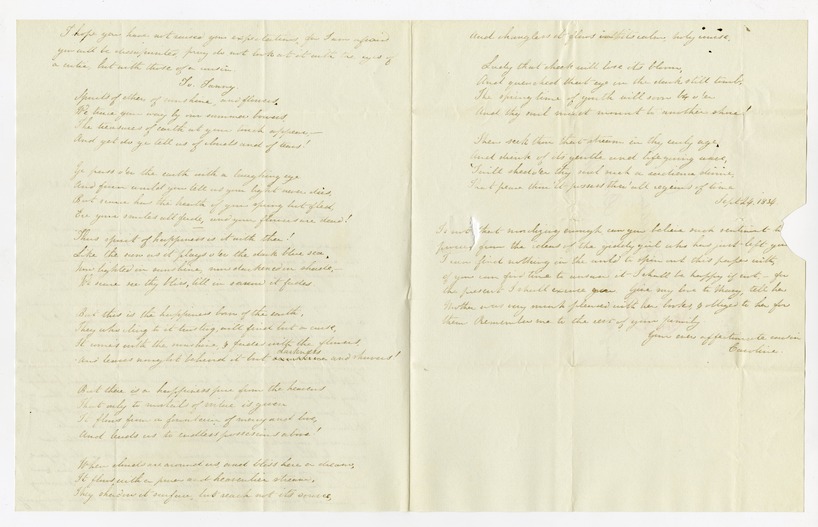 I hope you have not raised your expectations, for I am afraid
you will be disappointed, pray do not look at it with the eyes of
a critic, but with those of a cousin.
To Fanny
Spirits of ether, of sunshine, and flowers,
We trace your way by our summer bowers,
The treasures of earth at your touch appear,—
And yet do ye tell us of clouds and of tears!
Ye pass o'er the earth with a laughing eye
And from us wild you tell us your light never dies,
But scarce has the breath of your spring but fled,
Ere your smiles all fade, and your flowers are dead!
Thus spirit of happiness is it with thee!
Like the sun as it plays o'er the dark blue sea,
Now lighted in sunshine, now darkened in shade,—
We scarce see thy bliss, till in it fades
But this is the happiness born of the earth,
They who cling to it trusting, will find but a
It comes with the sunshine, & fades with the flowers,
And leaves nought behind it but darkness and showers!
But there is a happiness pure from the heavens
That only to mortals of virtue is given
It flows from a fountain of mercy and love,
And leads us to endless possessions above!
When clouds are around us, and bliss here a dream,
It flows, with a pure and heavenlier stream,
They shadow it surface, but reach not its source,
And changeless it flows in its calm, holy course.
Lady that cheek will lose its bloom,
And quenched that eye in the dark still tomb,
The spring time of youth will soon be o'er
And thy soul must mount to another shore!
Then seek thou that stream in thy early age,
And drink of its gentle and life giving wave,
'Twill shed o'er thy soul such a radiance divine,
That peace shall it possess thro' all regions of time
Sept 24, 1834.
Is not that moralizing enough can you believe such sentiments to
proceed from the ideas of the giddy girl who has just left you
I can find nothing in the world to spin out this paper with,
if you can find time to answer it I shall be happy if not,— for
the present I shall excuse you. Give my love to Mary, tell her
Mother was very much pleased with her books, & obliged to her for
them Remember me to the rest of your family
Your ever affectionate cousin
Caroline.